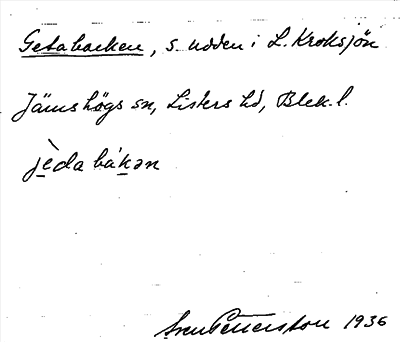 Getabacken, s. udden i L. Kroksjön
Jämshögs sn, Listers hd, Blek. l.
jèda bákən
Sven Petterson 1936